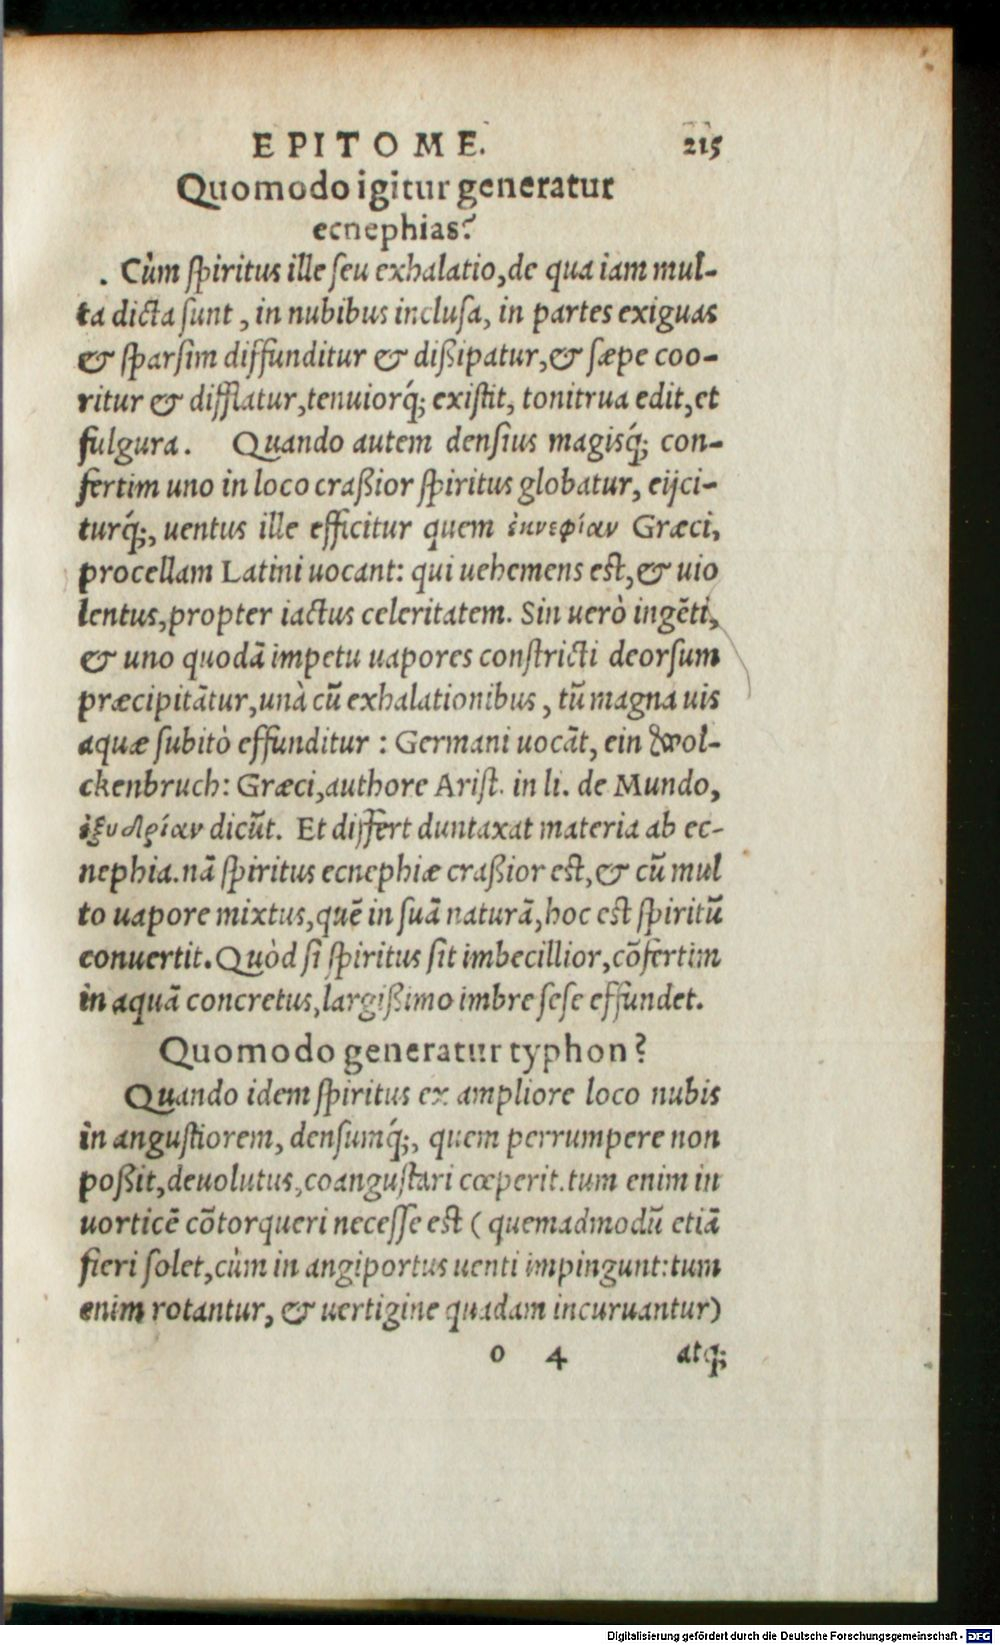 EPITOME. 215
Quomodo igitur generatur
ecnephias?
. Cùm ſpiritus ille ſeu exhalatio, de qua iam mul-
ta dicta ſunt, in nubibus incluſa, in partes exiguas
& ſparſim diffunditur & dißipatur, & ſæpe coo-
ritur & difflatur, tenuiorq́; exiſtit, tonitrua edit, et
fulgura. Quando autem denſius magisq́; con-
fertim uno in loco craßior ſpiritus globatur, eijci-
turq́;, uentus ille efficitur quem ἐκνεφίαν Græci,
procellam Latini uocant: qui uehemens eſt, & uio
lentus, propter iactus celeritatem. Sin uerò ingẽti,
& uno quodã impetu uapores conſtricti deorſum
præcipitãtur, unà cũ exhalationibus, tũ magna uis
aquæ ſubitò effunditur: Germani uocãt, ein Wol-
ckenbruch: Græci, authore Ariſt. in li. de Mundo,
ἐξυδρίαν dicũt. Et differt duntaxat materia ab ec-
nephia. nã ſpiritus ecnephiæ craßior eſt, & cũ mul
to uapore mixtus, quẽ in ſuã naturã, hoc eſt ſpiritũ
conuertit. Quòd ſi ſpiritus ſit imbecillior, cõfertim
in aquã concretus, largißimo imbre ſeſe effundet.
Quomodo generatur typhon?
Quando idem ſpiritus ex ampliore loco nubis
in anguſtiorem, denſumq́;, quem perrumpere non
poßit, deuolutus, coanguſtari cœperit. tum enim in
uorticẽ cõtorqueri neceſſe eſt (quemadmodũ etiã
fieri ſolet, cùm in angiportus uenti impingunt: tum
enim rotantur, & uertigine quadam incuruantur)
o 4 atq;
Digitalisierung gefördert durch die Deutsche Forschungsgemeinschaft - DFG